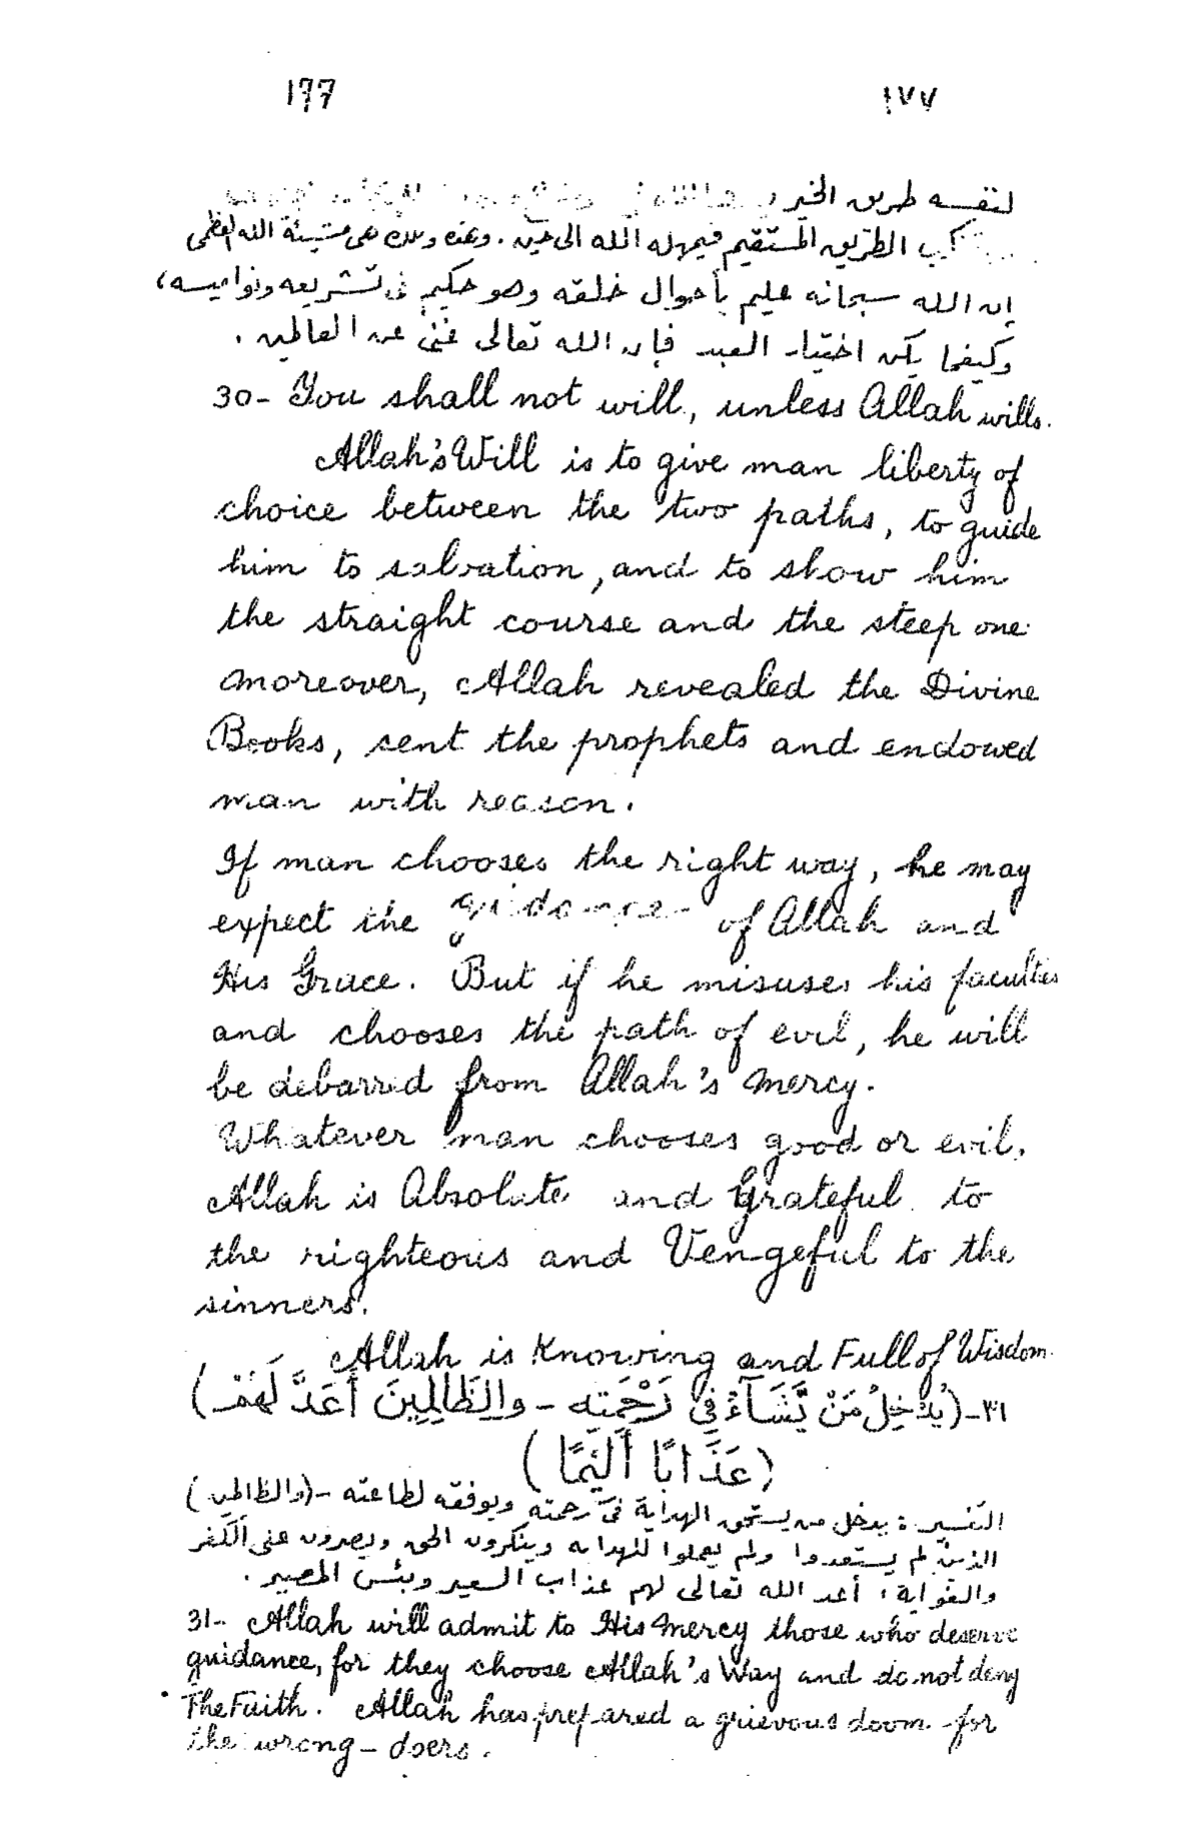 177 ١٧٧
لنفسه طريق الخير
الطريق المستقيم فيمهله الله الى حين . وهذه وتلك هى مشيئة الله العظمى
إن الله سبحانه عليم بأحوال خلقه وهو حكيم فى تشريعه ونواميسه ،
وكيفما يكن اختيار العبد فإن الله تعالى غنىٌ عن العالمين .
30- You shall not will, unless Allah wills.
Allah's Will is to give man liberty of
choice between the two paths, to guide
him to salvation, and to show him
the straight course and the steep one
moreover, Allah revealed the Divine
Books, sent the prophets and endowed
man with reason.
If man chooses the right way, he may
expect the guidance of Allah and
His Grace. But if he misuses his faculties
and chooses the path of evil, he will
be debarred from Allah's mercy.
Whatever man chooses good or evil.
Allah is Absolute and Grateful to
the righteous and Vengeful to the
sinners.
Allah is Knowing and Full of Wisdom.
٣١-(يُدْخِلُ مَنْ يَّشَآءُ فِي رَحْمَتِه - والظَّالِمِينَ أَعَدَّ لَهُمْ)
(عَذَابًا أَلَيمًا)
التفسير : يدخل من يستحق الهداية فى رحمته ويوفقه لطاعته -(والظالمين)
الذين لم يستعدوا ولم يعملوا للهدايه وينكرون الحق ويصرون على الكفر
والغواية ؛ أعد الله تعالى لهم عذاب السعير وبئس المصير .
31- Allah will admit to His Mercy those who deserve
guidance, for they choose Allah's Way and do not deny
The Faith. Allah has prepared a grievous doom for
the wrong-doers.